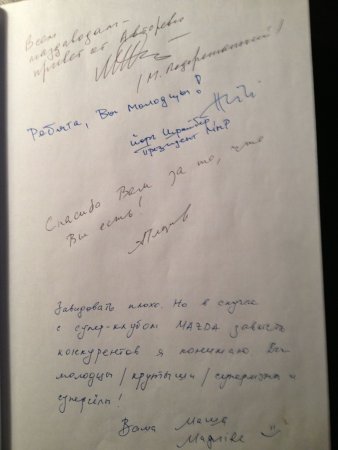 Всем
маздаводам -
привет от Авторевю
/М. Подорожанский/
Ребята, Вы молодцы!
Йорг Шрайбер
президент ММР
Спасибо Вам за то, что
Вы есть!
Завидовать плохо. Но в случае
с супер-клубом MAZDA зависть
конкурентов я понимаю Вы
молодцы/крутыши/супермэны и
супергёлы!
Ваша Маша